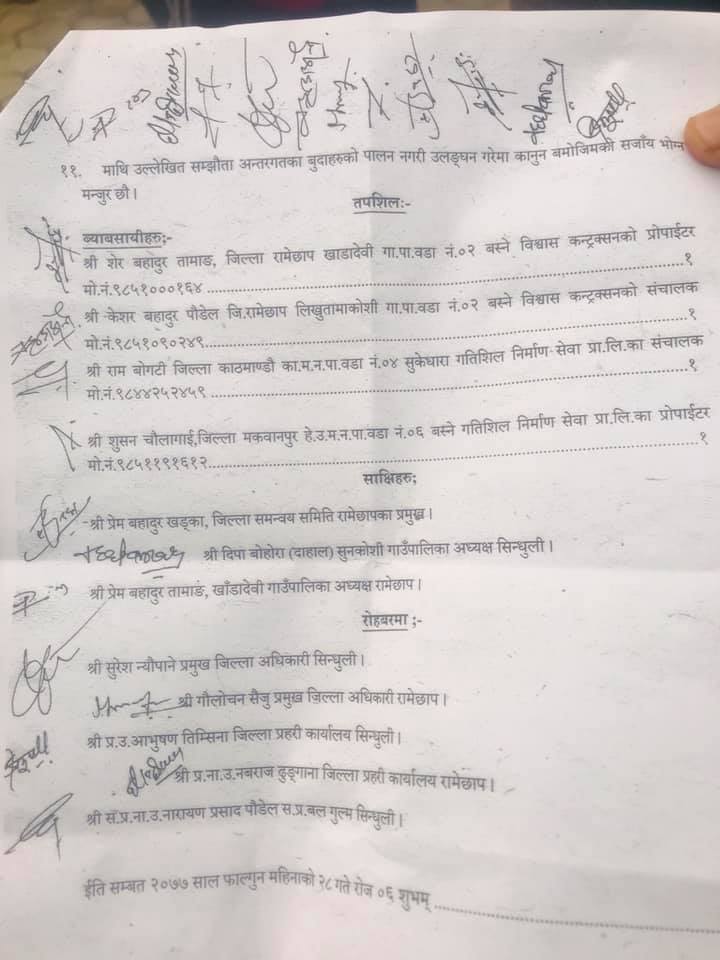 ११. माथि उल्लेखित सम्झौता अन्तरगतका बुदाहरुको पालन नगरी उलङ्घन गरेमा कानुन बमोजिमको सजाँय भोग्न
मन्जुर छौ।
तपशिलः-
ब्याबसायीहरु;-
श्री शेर बहादुर तामाङ, जिल्ला रामेछाप खाडादेवी गा.पा.वडा नं.०२ बस्ने विश्वास कन्ट्रक्सनको प्रोपाईटर
मो.नं.९८५१०००१६४ ........................................ १
श्री केशर बहादुर पौडेल जि.रामेछाप लिखुतामाकोशी गा.पा.वडा नं.०२ बस्ने विश्वास कन्ट्रक्सनको संचालक
मो.नं.९८५१०९०२४९ ........................................ १
श्री राम बोगटी जिल्ला काठमाण्डौ का.म.न.पा.वडा नं.०४ सुकेधारा गतिशिल निर्माण सेवा प्रा.लि.का संचालक
मो.नं.९८४४२५२४५९ ........................................ १
श्री शुसन चौलागाई,जिल्ला मकवानपुर हे.उ.म.न.पा.वडा नं.०६ बस्ने गतिशिल निर्माण सेवा प्रा.लि.का प्रोपाईटर
मो.नं.९८५११९१६१२ ........................................ १
साक्षिहरु;
श्री प्रेम बहादुर खड्का, जिल्ला समन्वय समिति रामेछापका प्रमुख।
श्री दिपा बोहोरा (दाहाल) सुनकोशी गाउँपालिका अध्यक्ष सिन्धुली।
श्री प्रेम बहादुर तामाङ, खाँडादेवी गाउँपालिका अध्यक्ष रामेछाप।
रोहबरमा ;-
श्री सुरेश न्यौपाने प्रमुख जिल्ला अधिकारी सिन्धुली।
श्री गौलोचन सैजु प्रमुख जिल्ला अधिकारी रामेछाप।
श्री प्र.उ.आभुषण तिम्सिना जिल्ला प्रहरी कार्यालय सिन्धुली।
श्री प्र.ना.उ.नबराज ढुङ्गाना जिल्ला प्रहरी कार्यालय रामेछाप।
श्री स.प्र.ना.उ.नारायण प्रसाद पौडेल स.प्र.बल गुल्म सिन्धुली।
ईति सम्बत २०७७ साल फाल्गुन महिनाको २८ गते रोज ०६ शुभम् ........................................